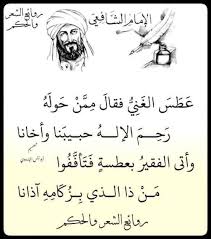 روائع الشعر
والحكم
الإمام الشافعي
عَطَسَ الغَنِيُّ فقالَ مِمَّنْ حَولَهُ
رَحِمَ الإلـهُ حبيبَنا وأخانا
وأتى الفقيرُ بعطسةٍ فَتَأَفَّفُوا
مَنْ ذا الـذي بِزُكامِهِ آذانا
روائع الشعر والحكم